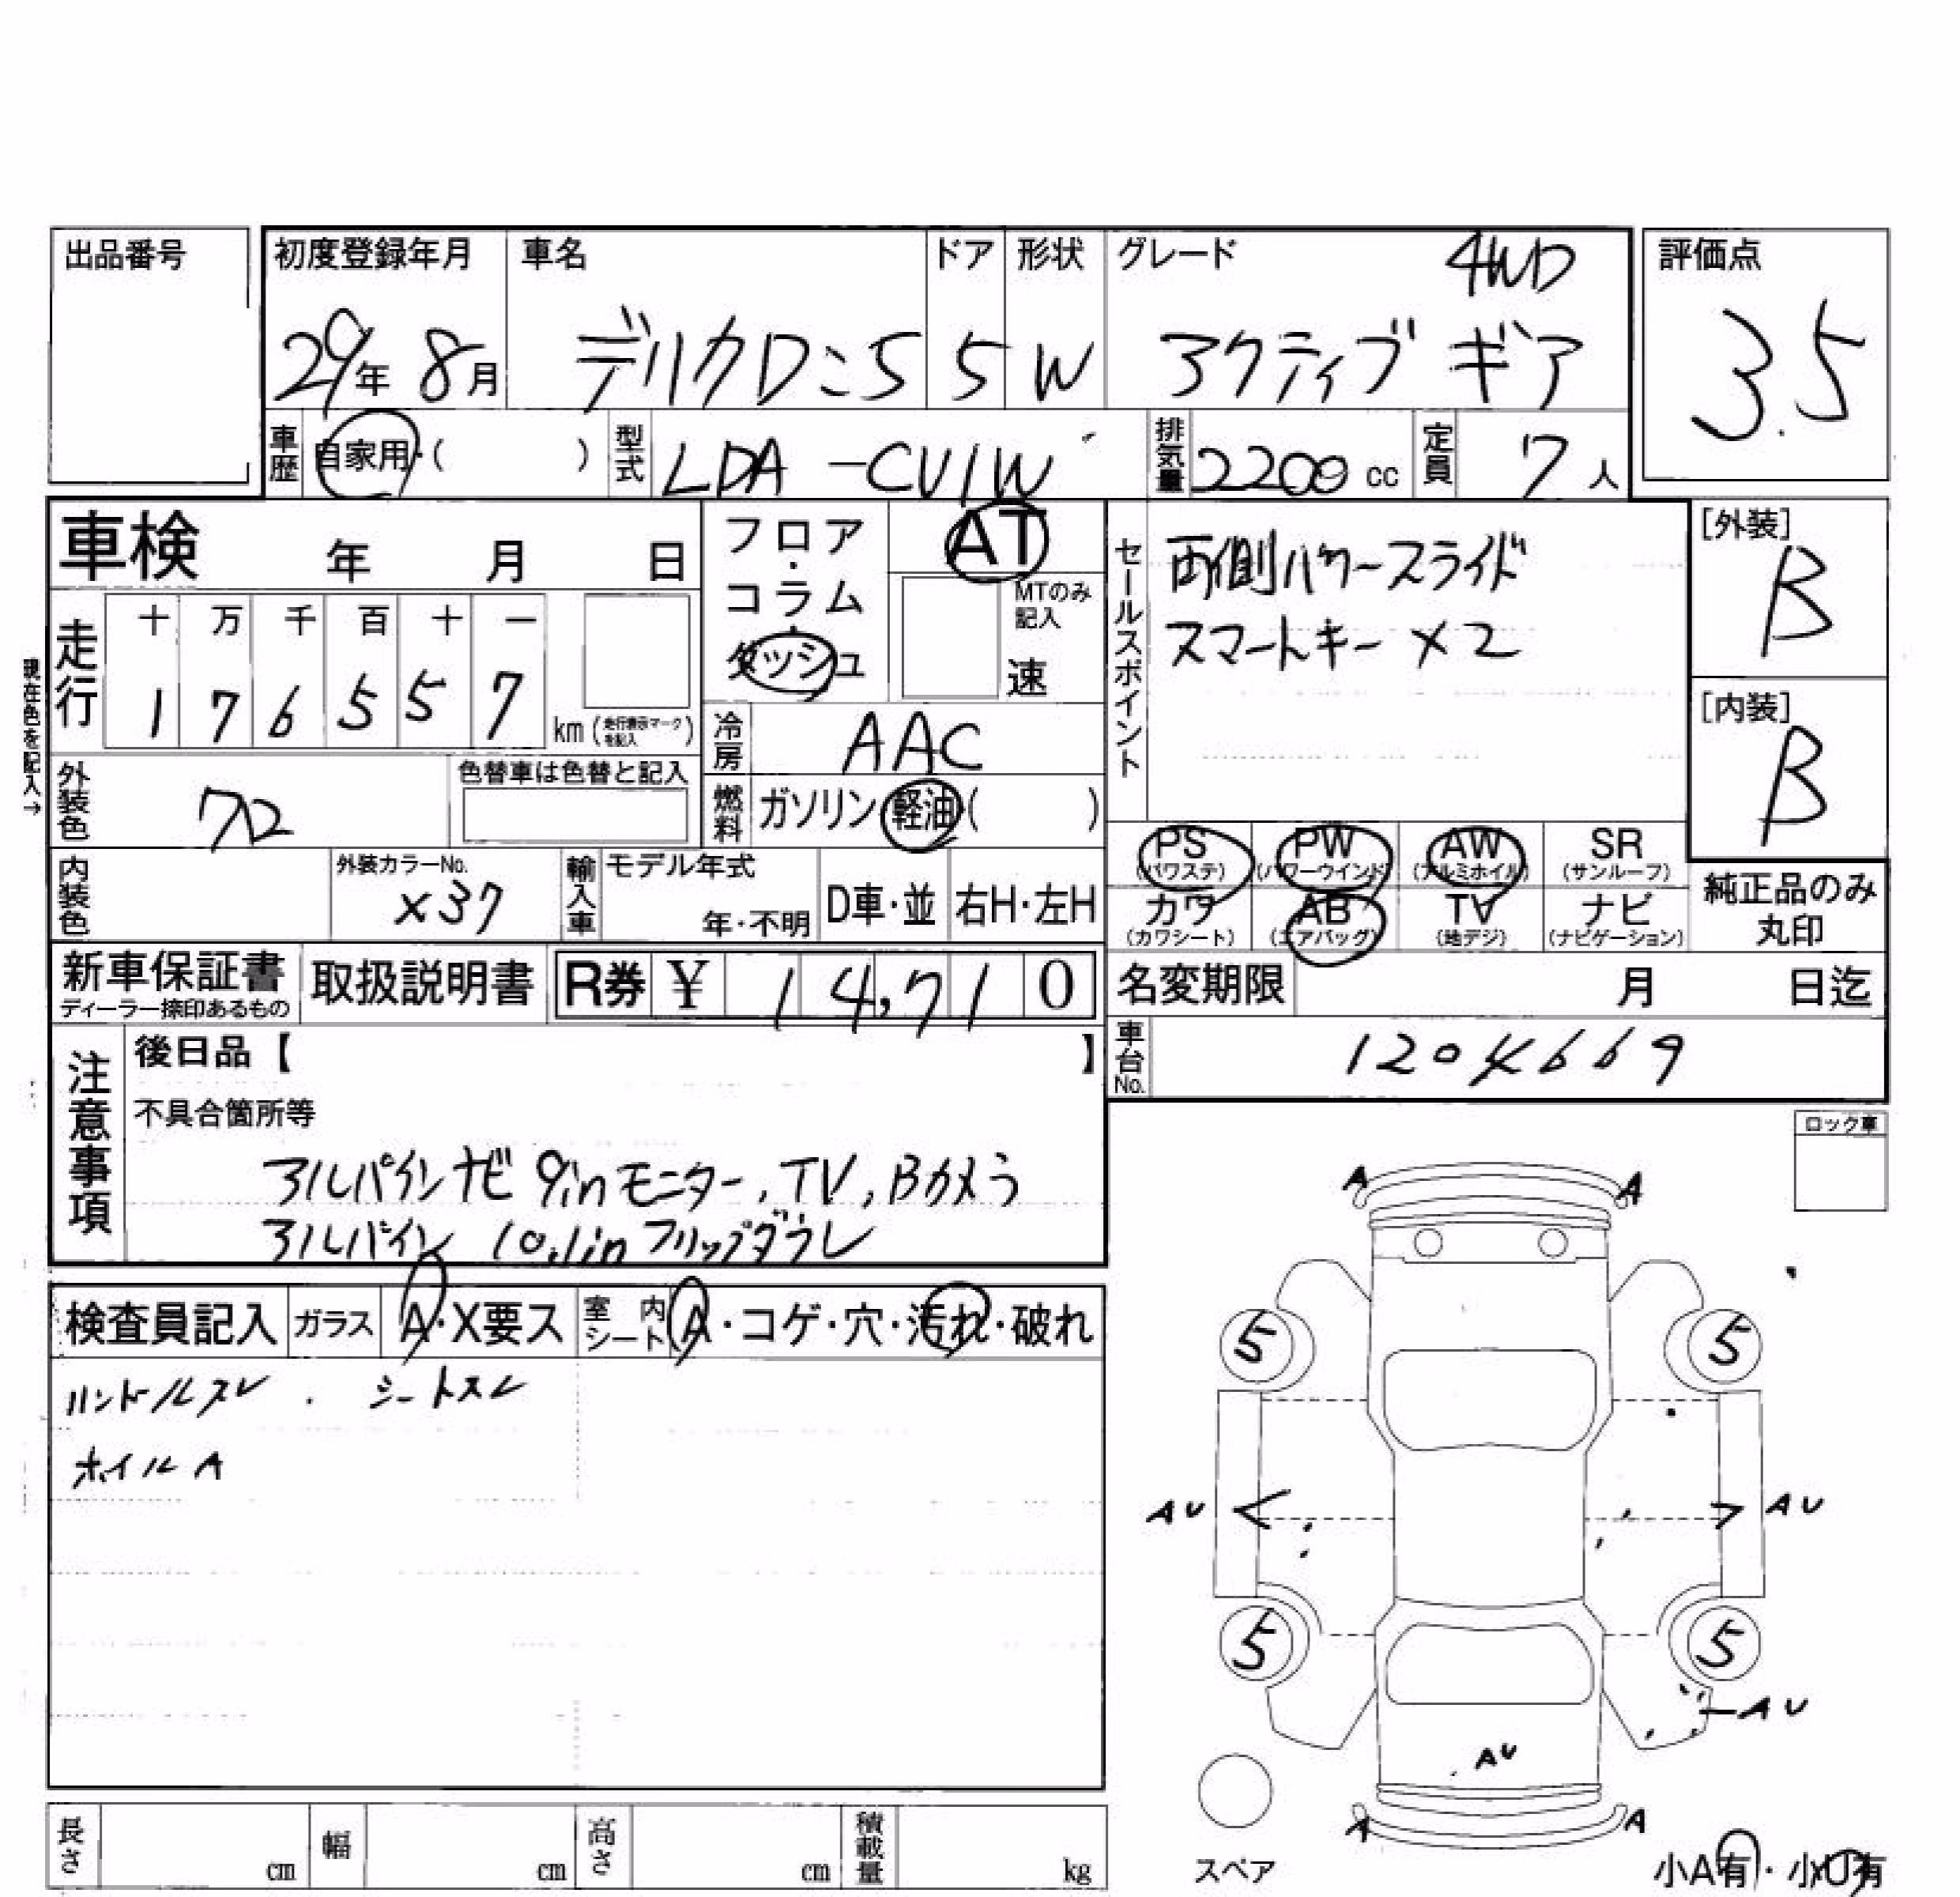 出品番号
初度登録年月 車名 ドア 形状 グレード 4WD 評価点
29年 8月 デリカD:5 5 W アクティブ ギア 3.5
車歴 自家用・( ) 型式 LDA-CV1W 排気量 2200 cc 定員 7 人
車検 年 月 日
フロア・コラム・ダッシュ AT
MTのみ記入
速
走行 十 万 千 百 十 一
1 7 6 5 5 7 km (走行表示マークを記入)
現在色を記入→
冷房 AAC
外装色 クロ 色替車は色替と記入
燃料 ガソリン・軽油・( )
内装色 外装カラーNo. X37 輸入車 モデル年式 年・不明 D車・並 右H・左H
セールスポイント
両側パワースライド
スマートキー×2
[外装] B
[内装] B
PS (パワステ) PW (パワーウインド) AW (アルミホイル) SR (サンルーフ)
カワ (カワシート) AB (エアバッグ) TV (地デジ) ナビ (ナビゲーション)
純正品のみ丸印
新車保証書 ディーラー捺印あるもの 取扱説明書 R券 ¥ 14,710
名変期限 月 日迄
車台No. 1204669
注意事項
後日品【 】
不具合箇所等
アルパインナビ 9inモニター,TV,Bカメラ
アルパイン 10.1inフリップダウン
ロック車
検査員記入 ガラス A・X要ス 室内シート A・コゲ・穴・汚れ・破れ
ハンドルスレ . シートスレ
ホイルA
A A
5 5
AU AU
5 5
AU
AU
A A
スペア
小A有・小U有
長さ cm 幅 cm 高さ cm 積載量 kg